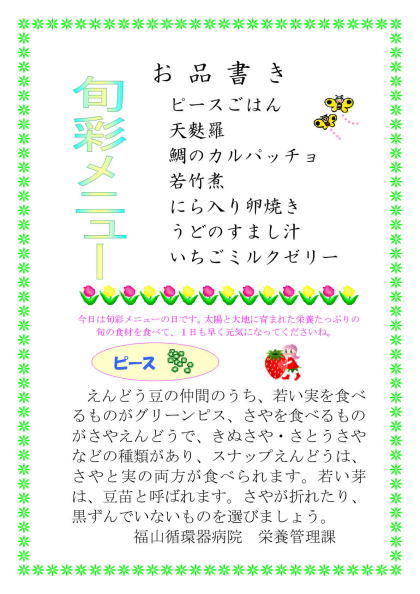 旬彩メニュー
お品書き
ピースごはん
天麩羅
鯛のカルパッチョ
若竹煮
にら入り卵焼き
うどのすまし汁
いちごミルクゼリー
今日は旬彩メニューの日です。太陽と大地に育まれた栄養たっぷりの
旬の食材を食べて、１日も早く元気になってくださいね。
ピース
えんどう豆の仲間のうち、若い実を食べ
るものがグリーンピス、さやを食べるもの
がさやえんどうで、きぬさや・さとうさや
などの種類があり、スナップえんどうは、
さやと実の両方が食べられます。若い芽
は、豆苗と呼ばれます。さやが折れたり、
黒ずんでいないものを選びましょう。
福山循環器病院　栄養管理課